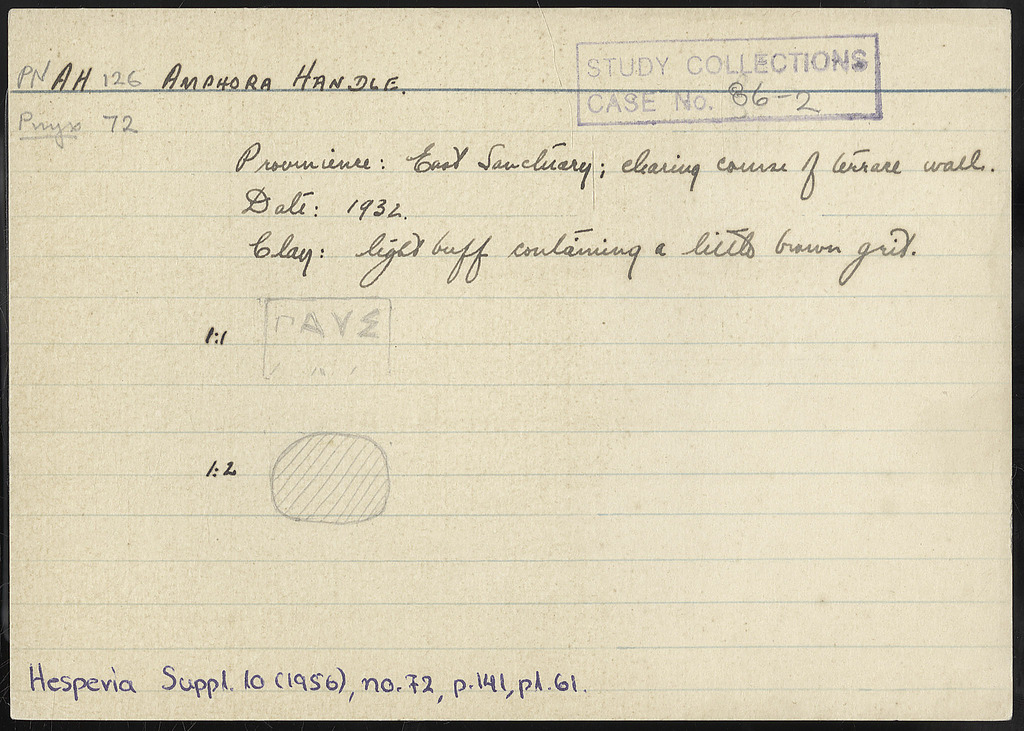 PN AH 126 AMPHORA HANDLE.
STUDY COLLECTIONS
CASE No. 86-2
Pnyx 72
Provenience: East Sanctuary; clearing course of terrace wall.
Date: 1932.
Clay: light buff containing a little brown grit.
1:1
ΓΑΥΣ
1:2
Hesperia Suppl. 10 (1956), no. 72, p. 141, pl. 61.